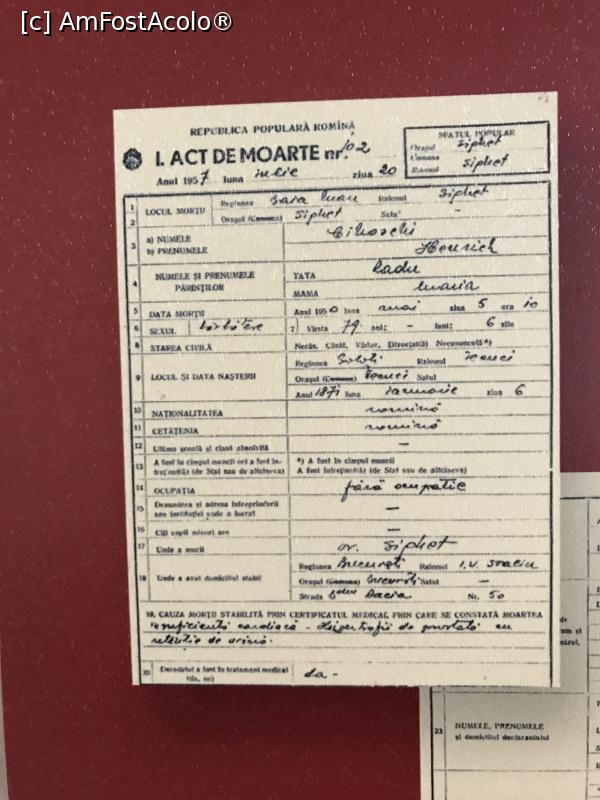 [c] AmFostAcolo®
REPUBLICA POPULARĂ ROMÎNĂ
I. ACT DE MOARTE nr. 102
Anul 1957 luna iulie ziua 20
SFATUL POPULAR
Orașul Siphet
Comuna
Raionul Siphet
1 LOCUL MORȚII Regiunea Baia Mare Raionul Siphet
2 Orașul (Comuna) Siphet Satul –
3 a) NUMELE
b) PRENUMELE Henrich
4 NUMELE ȘI PRENUMELE PĂRINȚILOR TATA Radu
MAMA Maria
5 DATA MORȚII Anul 1950 luna mai ziua 5 ora 10
6 SEXUL bărbătesc 7) Vîrsta 79 ani; – luni; 6 zile
8 STAREA CIVILĂ Necăs. Căsăt. Văduv, Divorțat(ă) Necunoscută*)
9 LOCUL ȘI DATA NAȘTERII Regiunea Raionul
Orașul (Comuna) Satul
Anul 1871 luna ianuarie ziua 6
10 NAȚIONALITATEA romînă
11 CETĂȚENIA romînă
12 Ultima școală și clasă absolvită –
13 A fost în cîmpul muncii ori a fost în-
treținut(ă) (de Stat sau de altcineva)
*) A fost în cîmpul muncii
A fost întreținut(ă) (de Stat sau de altcineva)
14 OCUPAȚIA fără ocupație
15 Denumirea și adresa întreprinderii
sau instituției unde a lucrat –
16 Cîți copii minori are –
17 Unde a murit or. Siphet
18 Unde a avut domiciliul stabil Regiunea București Raionul I.V. Stalin
Orașul (Comuna) București Satul –
Strada Bdul Dacia Nr. 50
19. CAUZA MORȚII STABILITĂ PRIN CERTIFICATUL MEDICAL, PRIN CARE SE CONSTATĂ MOARTEA
Insuficiență cardiacă – Hipertrofii de prostată cu
retenție de urină.
20 Decedatul a fost în tratament medical
(da, nu) da –
23 NUMELE, PRENUMELE
și domiciliul declarantului